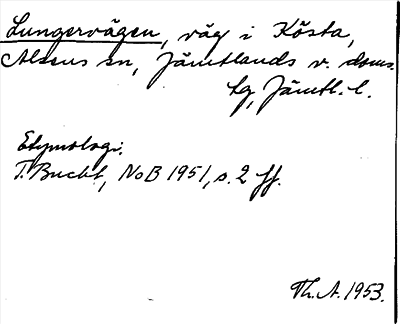 Lungervägen, väg i Kösta,
Alsens sn, Jämtlands v. doms.
lg, Jämtl. l.
Etymologi.
T. Bucht, NoB 1951, s. 2 ff.
Th. A. 1953.